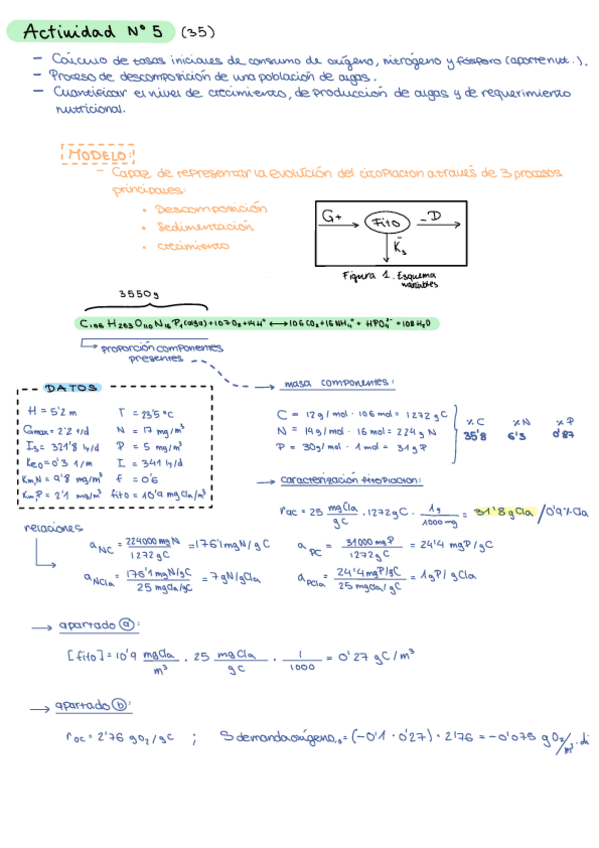 Actividad Nº 5 (35)
- Cálculo de tasas iniciales de consumo de oxígeno, nitrógeno y fósforo (aporte nut.).
- Proceso de descomposición de una población de algas.
- Cuantificar el nivel de crecimiento, de producción de algas y de requerimiento
nutricional.
MODELO:
- Capaz de representar la evolución del citoplacton a través de 3 procesos
principales:
• Descomposición
• Sedimentación
• crecimiento
G+ Fito -D
Ks
Figura 1. Esquema
variables
3550g
C106 H263 O110 N16 P1 (alga) + 107O2 + 14H+ ⟷ 106 CO2 + 16 NH4+ + HPO4 2- + 108 H2O
proporción componentes
presentes
DATOS
H = 5'2 m T = 23'5 ºC
Gmax = 2'2 1/d N = 17 mg/m³
Is = 321'8 ly/d P = 5 mg/m³
Keo = 0'3 1/m I = 341 ly/d
Km,N = 9'8 mg/m³ f = 0'6
Km,P = 2'1 mg/m³ fito = 10'9 mg Cla/m³
masa componentes:
C = 12g/mol · 106 mol = 1272 g C
N = 14g/mol · 16 mol = 224 g N
P = 30g/mol · 1 mol = 31 g P
% C % N % P
35'8 6'3 0'87
caracterización fitoplacton:
rac = 25 mgCla/gC · 1272gC · 1g/1000mg = 31'8 g Cla / 0'9% Cla
relaciones
aNC = 224000 mg N/1272gC = 176'1 mgN/g C aPC = 31000 mg P/1272gC = 24'4 mgP/gC
aNCla = 176'1 mgN/gC/25 mgCla/gC = 7gN/gCla aPCla = 24'4 mgP/gC/25 mgCla/gC = 1gP/gCla
apartado a:
[fito] = 10'9 mgCla/m³ · 25 mgCla/gC · 1/1000 = 0'27 gC/m³
apartado b:
roc = 2'76 gO2/gC ; Sdemandaoxígeno,0 = (-0'1 · 0'27) · 2'76 = -0'075 gO2/m³·dí